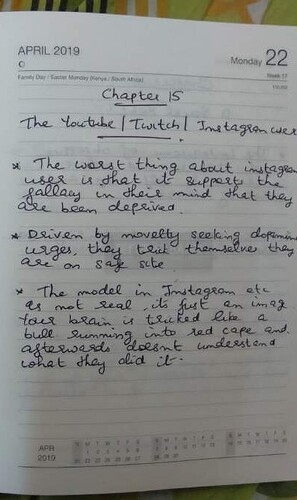 APRIL 2019
Monday 22
Family Day / Easter Monday (Kenya / South Africa)
Week 17
Chapter 15
The Youtube / Twitch / Instagram user
* The worst thing about instagram
user is that it support the
fallacy in their mind that they
are been deprived.
* Driven by movelty seeking dopamine
urges, they trick themselve they
are on safe site.
* The model in Instagram etc
is not real, its just an imag
Your brain is tricked like a
bull running into red cape and
afterwards doesnt understand
what they did it.
APR
2019
S M T W T F S
S M T W T F S
S M T W T F S